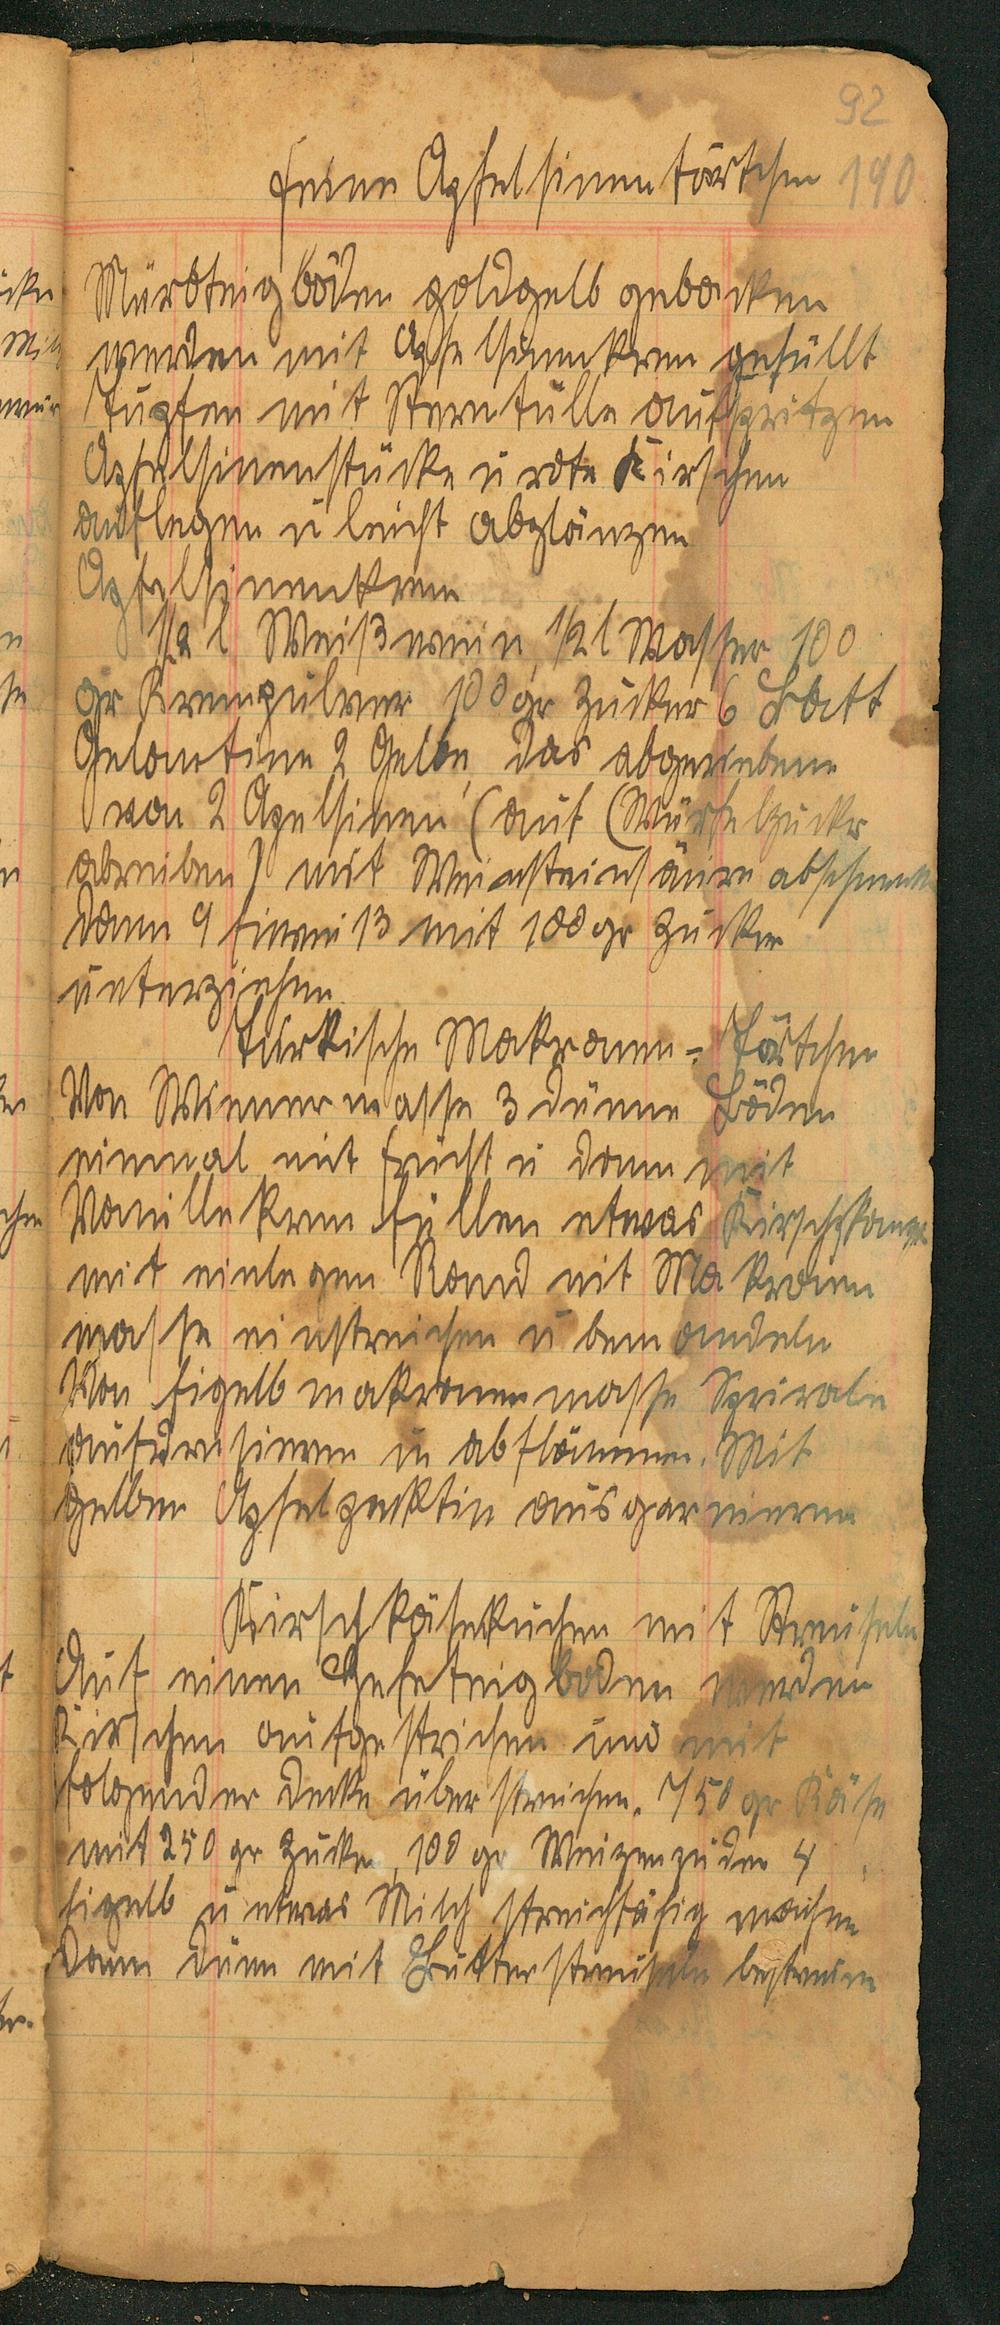 92
feine Apfelsinentörtchen 190
Mürbteigböden goldgelb gebacken
werden mit Apfelsinenkrem gefüllt
Tupfen mit Sterntülle aufspritzen
Apfelsinenstücke ü rote Kirschen
auflegen ü leicht abglänzen
Apfelsinenkrem
1/2 l Weißwein, 1/2 l Wasser 100
gr Krempulver 100 gr Zucker 6 Blatt
Gelantine 2 Gelbe, das abgeriebene
von 2 Apelsinen (auf (Würfelzuckr
abreiben) mit Weinsteinsäure abschmeck
dann 9 Eiweiß mit 100 gr Zucker
unterziehen
Türkische Makronen-Törtchen
Von Wienermasse 3 dünne Böden
einmal mit Frücht ü dann mit
Vanillekrem füllen etwas
mit einlegen Rand mit Makronen
masse einstreichen ü bemandeln
Von Eigelbmakronenmasse Spirale
aufdresieren ü abflämmen. Mit
gelben Apfelpektin ausgarnieren
Kirschkäsekuchen mit Streuseln
Auf einen Hefeteigboden werden
Kirschen aufgestrichen und mit
folgender decke überstreichen. 750 gr Käse
mit 250 gr Zucker, 100 gr Weizenpuder 4
Eigelb ü etwas Milch streichfähig machen
dann dünn mit Butterstreuseln bestreuen